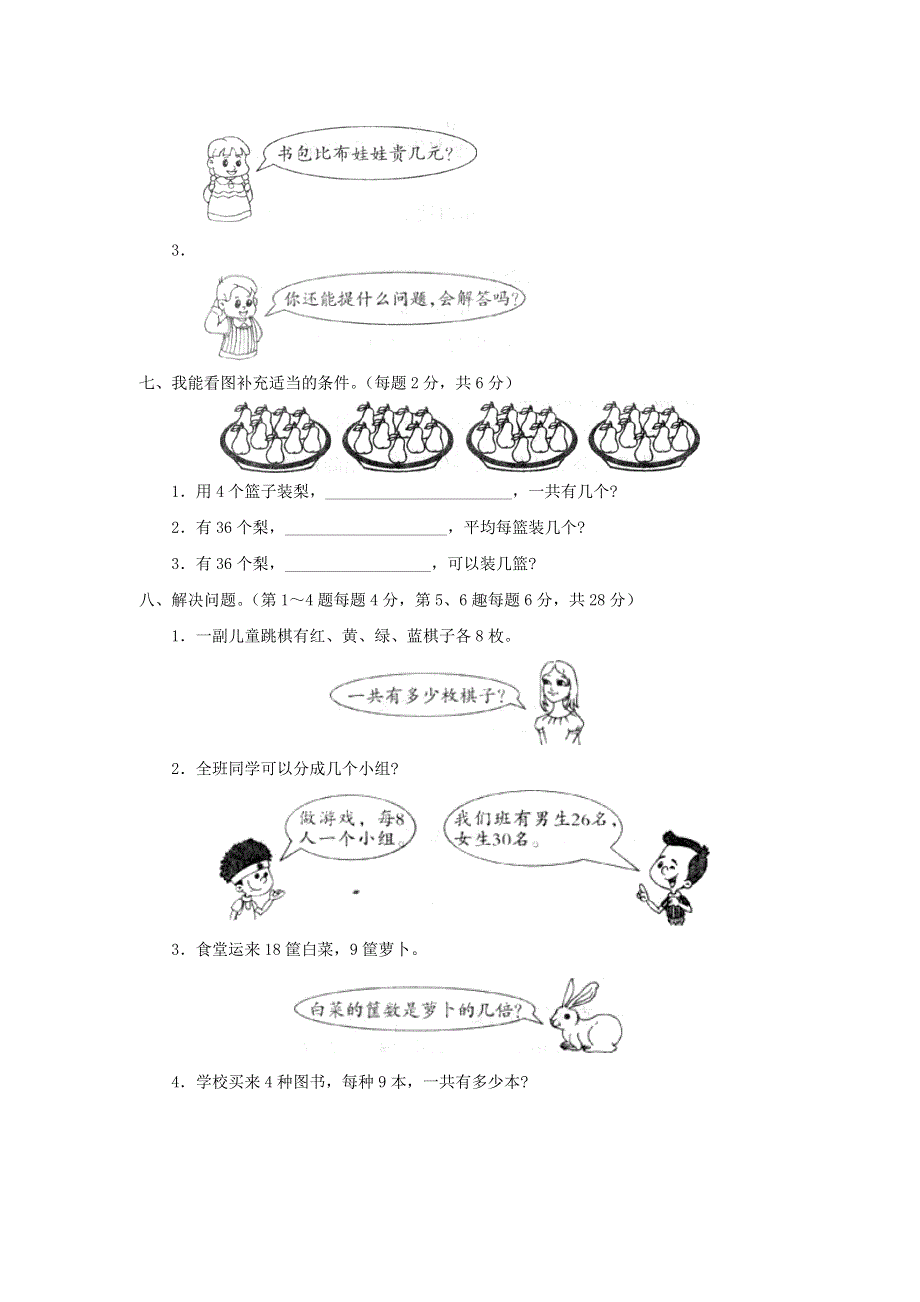 书包比布娃娃贵几元?
3.
你还能提什么问题,会解答吗?
七、我能看图补充适当的条件。(每题2分,共6分)
1.用4个篮子装梨,_______________________,一共有几个?
2.有36个梨,____________________,平均每篮装几个?
3.有36个梨,__________________,可以装几篮?
八、解决问题。(第1~4题每题4分,第5、6趣每题6分,共28分)
1.一副儿童跳棋有红、黄、绿、蓝棋子各8枚。
一共有多少枚棋子?
2.全班同学可以分成几个小组?
做游戏,每8
人一个小组。
我们班有男生26名,
女生30名。
3.食堂运来18筐白菜,9筐萝卜。
白菜的筐数是萝卜的几倍?
4.学校买来4种图书,每种9本,一共有多少本?